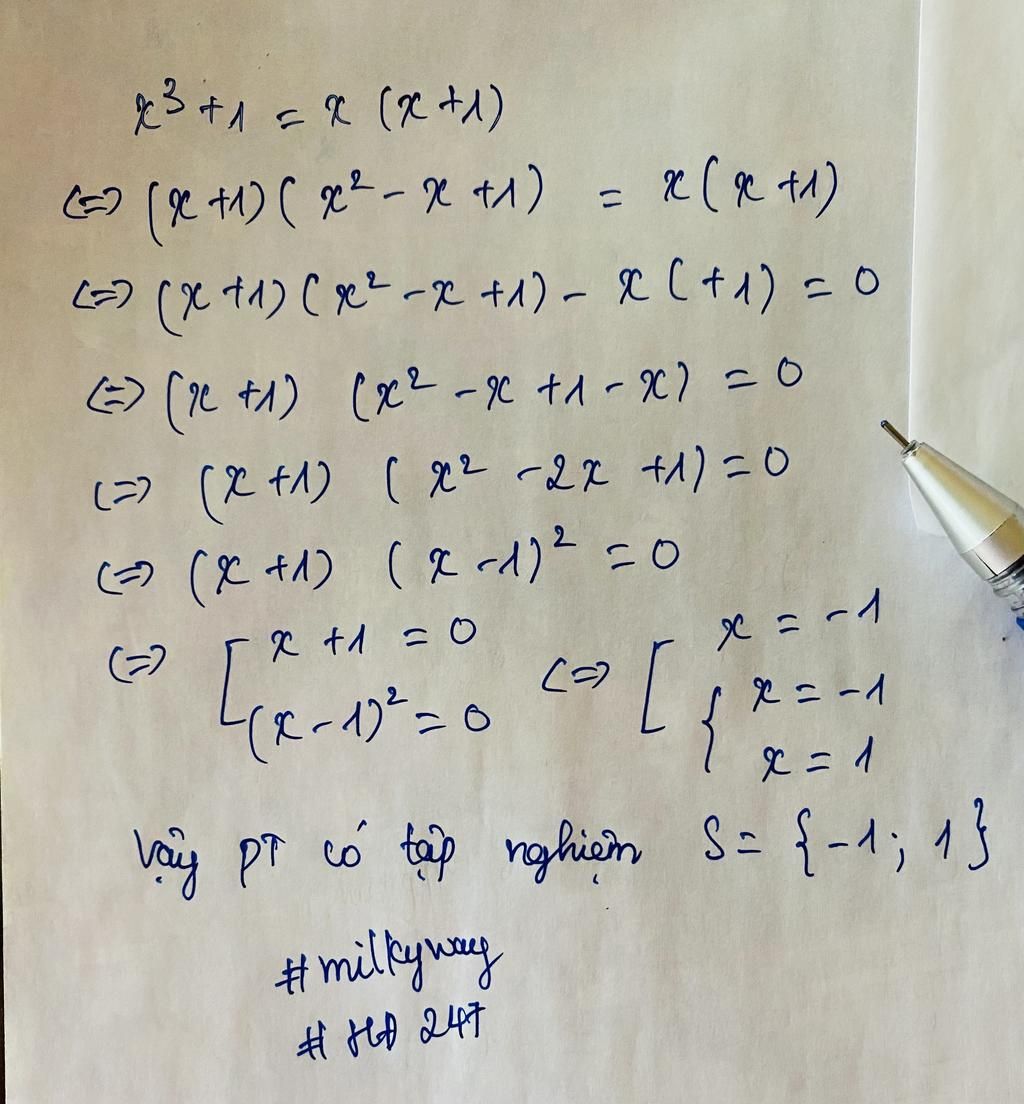 x³ + 1 = x (x + 1)
(=) (x + 1) (x² - x + 1) = x (x + 1)
(=) (x + 1) (x² - x + 1) - x ( + 1) = 0
(=) (x + 1) (x² - x + 1 - x) = 0
(=) (x + 1) (x² - 2x + 1) = 0
(=) (x + 1) (x - 1)² = 0
(=) [ x + 1 = 0 (=) [ x = -1
(x - 1)² = 0 { x = -1
x = 1
Vậy PT có tập nghiệm S = {-1; 1}
#milkyway
#HĐ 247